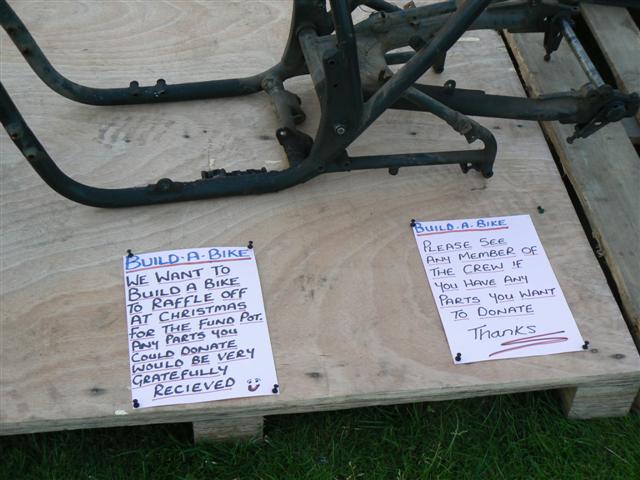 BUILD-A-BIKE
WE WANT TO
BUILD A BIKE
TO RAFFLE OFF
AT CHRISTMAS
FOR THE FUND POT.
ANY PARTS YOU
COULD DONATE
WOULD BE VERY
GRATEFULLY
RECIEVED
BUILD-A-BIKE
PLEASE SEE
ANY MEMBER OF
THE CREW IF
YOU HAVE ANY
PARTS YOU WANT
TO DONATE
Thanks